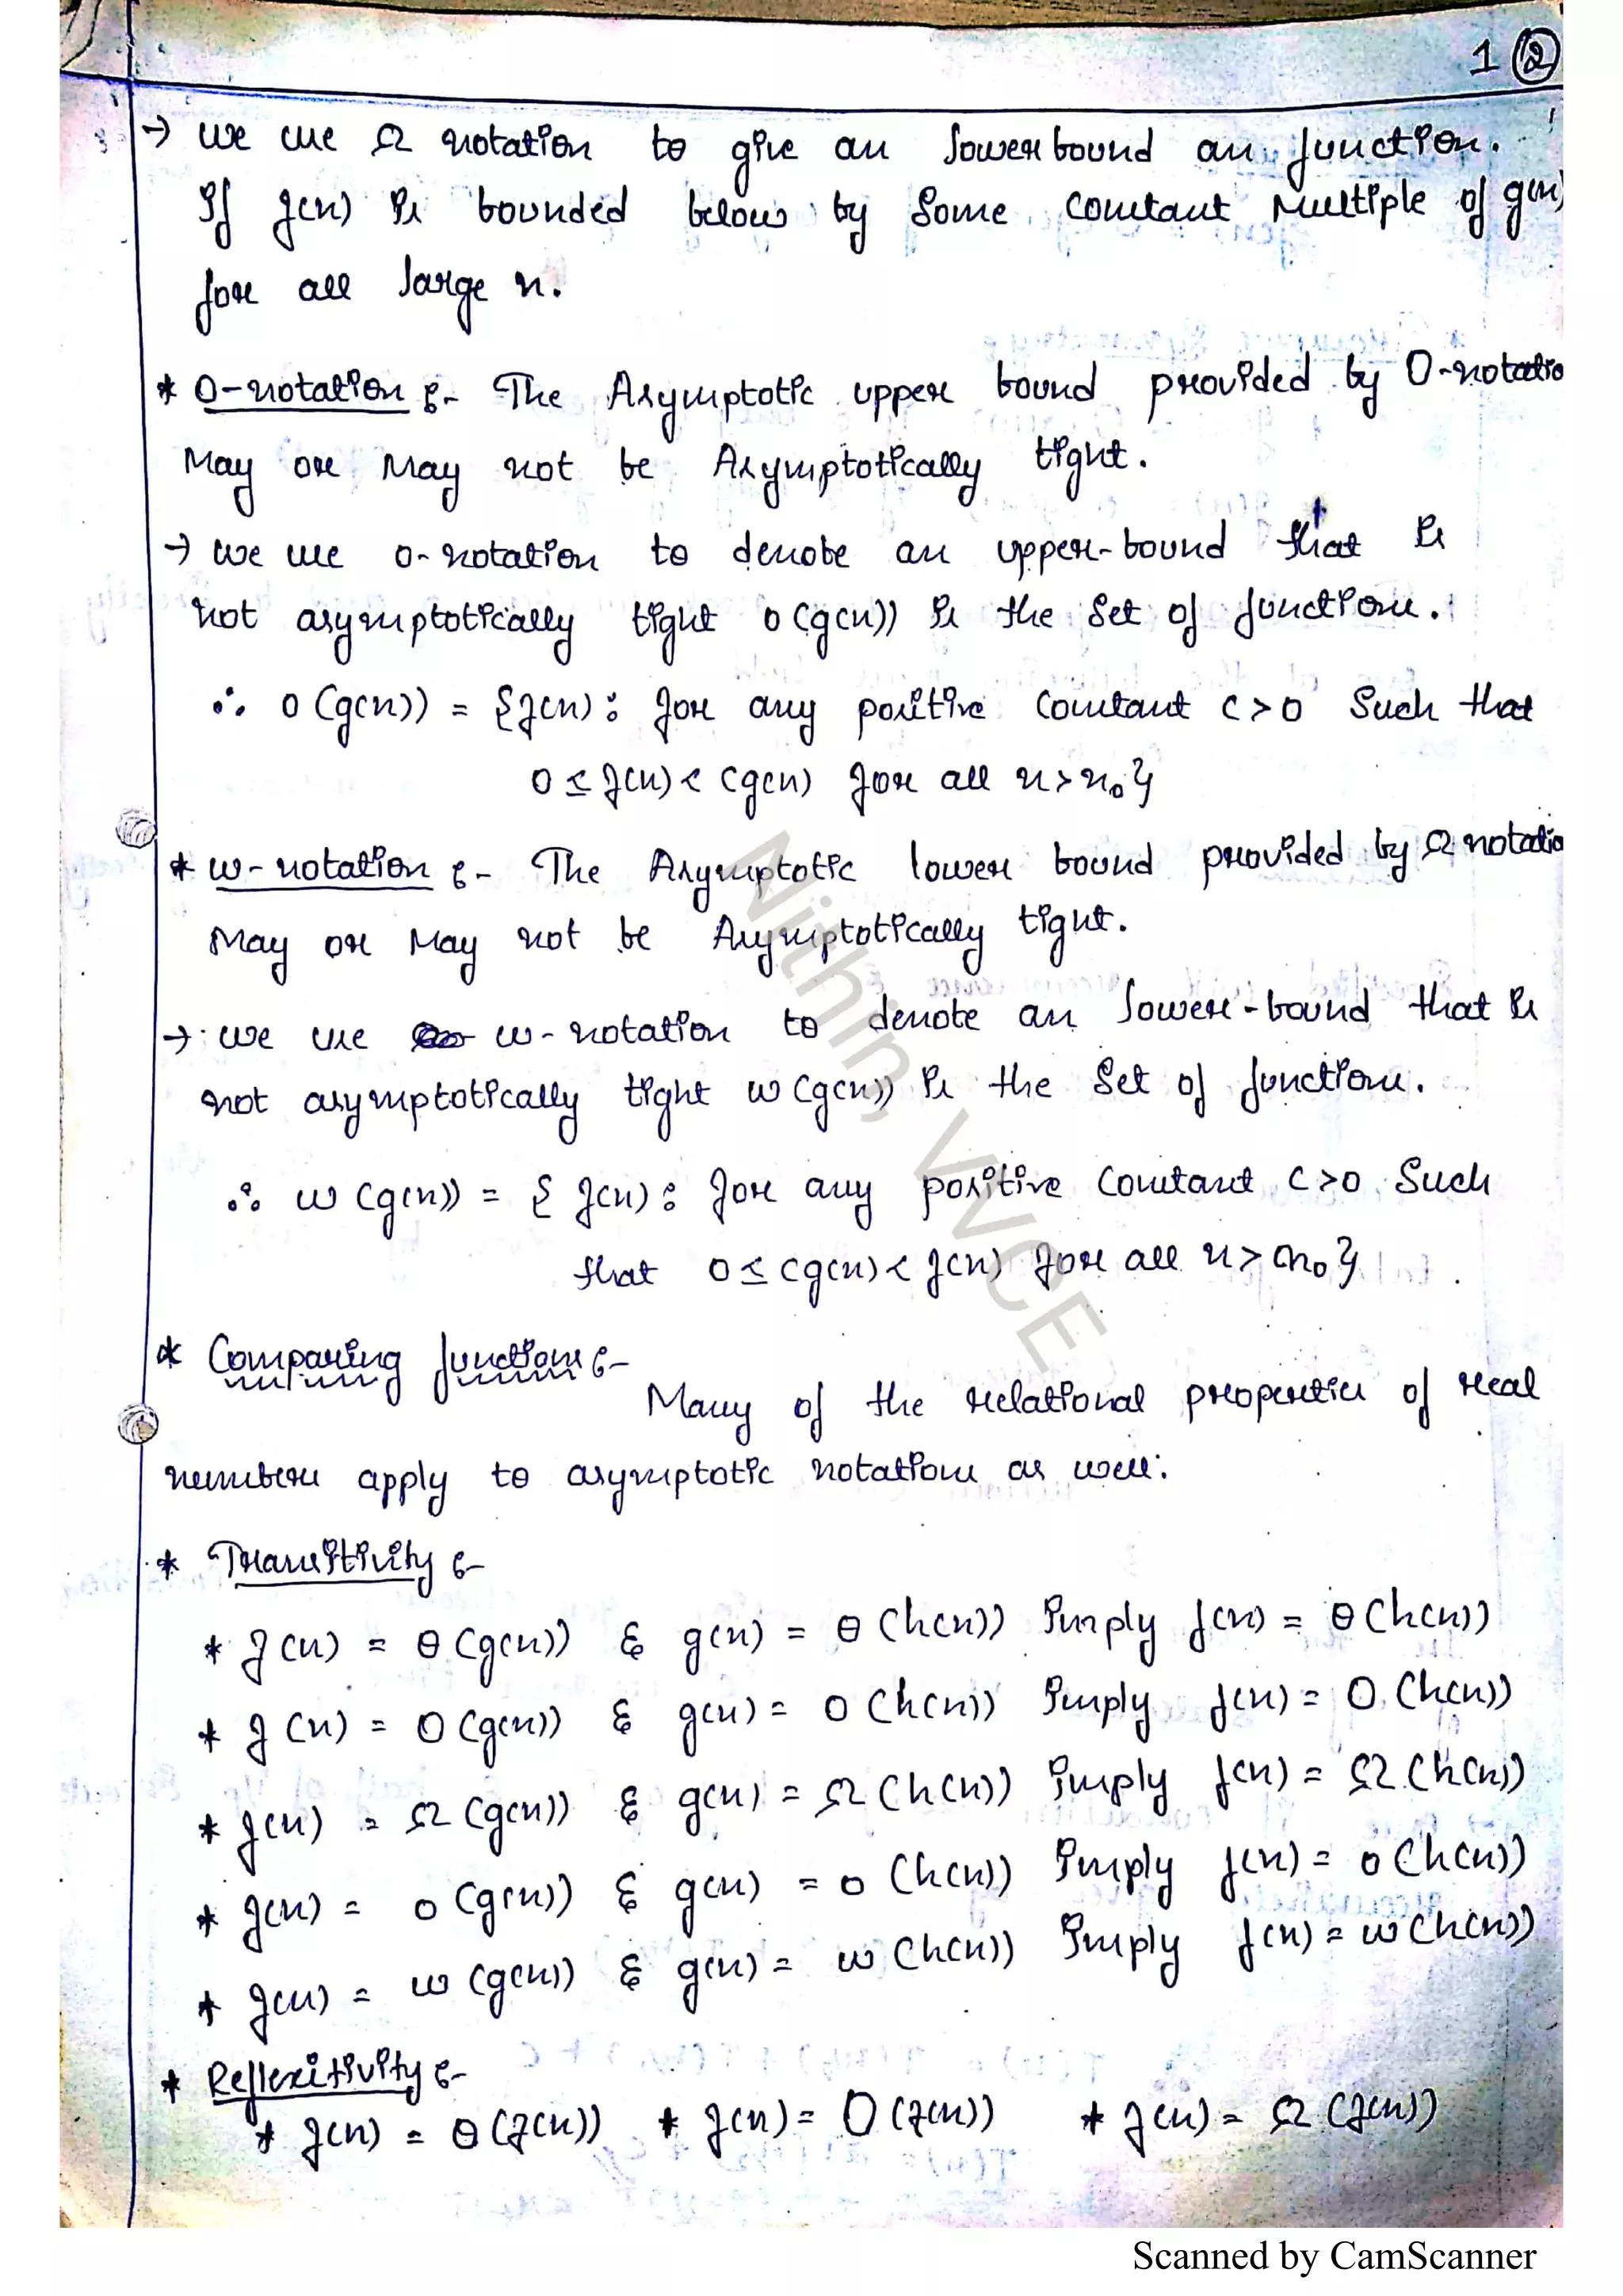 1 ②
→ we use Ω notation to give an lower bound an function.
If f(n) is bounded below by Some constant Multiple of g(n)
for all large n.
* O-notation :- The Asymptotic upper bound provided by O-notatio
May or May not be Asymptotically tight.
→ we use o-notation to denote an upper-bound that is
not asymptotically tight o(g(n)) is the Set of functions.
∴ o(g(n)) = {f(n) : for any positive constant c>0 Such that
0 ≤ f(n) < cg(n) for all n>n₀}
* w-notation :- The Asymptotic lower bound provided by Ω notatio
May or May not be Asymptotically tight.
→ we use w-notation to denote an lower-bound that is
not asymptotically tight w(g(n)) is the Set of functions.
∴ w(g(n)) = { f(n) : for any positive Constant c>0 Such
that 0 ≤ cg(n) < f(n) for all n> n₀}
* Comparing functions :-
Many of the relational properties of real
numbers apply to asymptotic notations as well:
* Transitivity :-
* f(n) = θ(g(n)) & g(n) = θ(h(n)) Imply f(n) = θ(h(n))
* f(n) = O(g(n)) & g(n) = O(h(n)) Imply f(n) = O(h(n))
* f(n) = Ω(g(n)) & g(n) = Ω(h(n)) Imply f(n) = Ω(h(n))
* f(n) = o(g(n)) & g(n) = o(h(n)) Imply f(n) = o(h(n))
* f(n) = w(g(n)) & g(n) = w(h(n)) Imply f(n) = w(h(n))
* Reflexitivity :-
* f(n) = θ(f(n)) * f(n) = O(f(n)) * f(n) = Ω(f(n))
Nithin, VVCE
Scanned by CamScanner